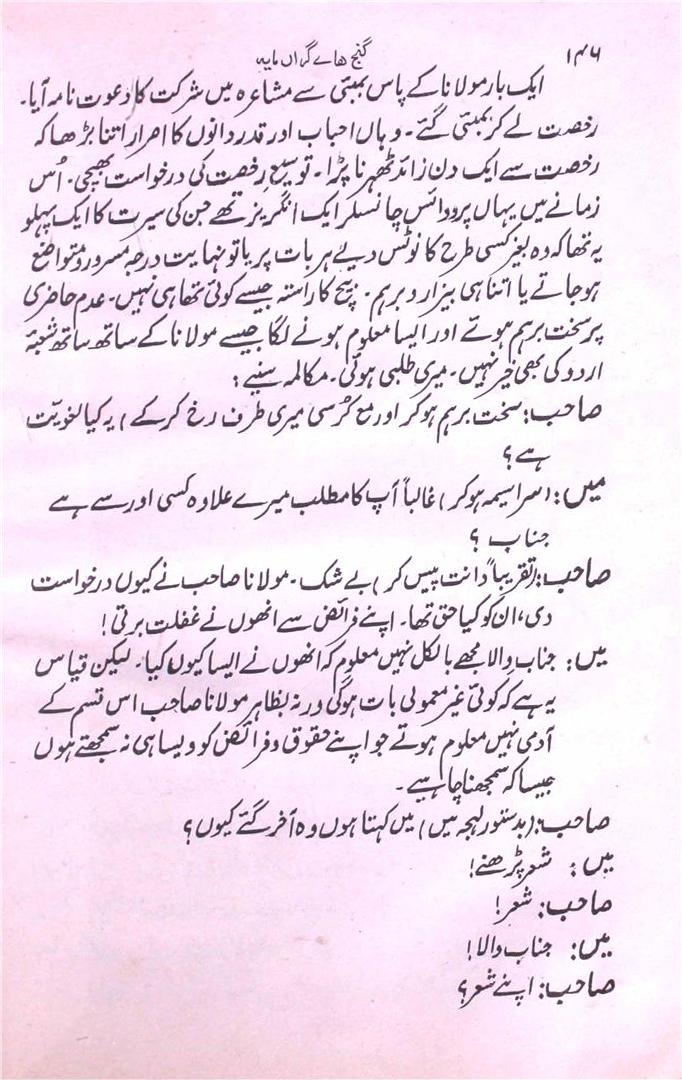 ۱۴۶
گنج ہائے گراں مایہ
ایک بار مولانا کے پاس بمبئی سے مشاعرہ میں شرکت کا دعوت نامہ آیا۔
رخصت لے کر بمبئی گئے۔ وہاں احباب اور قدردانوں کا اصرار اتنا بڑھا کہ
رخصت سے ایک دن زائد ٹھہرنا پڑا۔ توسیع رخصت کی درخواست بھیجی۔ اُس
زمانے میں یہاں پرو وائس چانسلر ایک انگریز تھے جن کی سیرت کا ایک پہلو
یہ تھا کہ وہ بغیر کسی طرح کا نوٹس دیے ہر بات پر یا تو نہایت درجہ مسرور و متواضع
ہو جاتے یا اتنا ہی بیزار و برہم۔ بیچ کا راستہ جیسے کوئی تھا ہی نہیں۔ عدم حاضری
پر سخت برہم ہوئے اور ایسا معلوم ہونے لگا جیسے مولانا کے ساتھ ساتھ شعبۂ
اردو کی بھی خیر نہیں۔ میری طلبی ہوئی۔ مکالمہ سنیے:
صاحب: سخت برہم ہو کر اور مع کُرسی میری طرف رخ کر کے) یہ کیا لغویّت
ہے؟
میں: (سراسیمہ ہو کر) غالباً آپ کا مطلب میرے علاوہ کسی اور سے ہے
جناب؟
صاحب: (تقریباً دانت پیس کر) بے شک۔ مولانا صاحب نے کیوں درخواست
دی، ان کو کیا حق تھا۔ اپنے فرائض سے انھوں نے غفلت برتی!
میں: جناب والا مجھے بالکل نہیں معلوم کہ انھوں نے ایسا کیوں کیا۔ لیکن قیاس
یہ ہے کہ کوئی غیر معمولی بات ہوگی ورنہ بظاہر مولانا صاحب اس قسم کے
آدمی نہیں معلوم ہوتے جو اپنے حقوق و فرائض کو ویسا ہی نہ سمجھتے ہوں
جیسا کہ سمجھنا چاہیے۔
صاحب: (بدستور لہجہ میں) میں کہتا ہوں وہ آخر گئے کیوں؟
میں: شعر پڑھنے!
صاحب: شعر!
میں: جناب والا!
صاحب: اپنے شعر؟